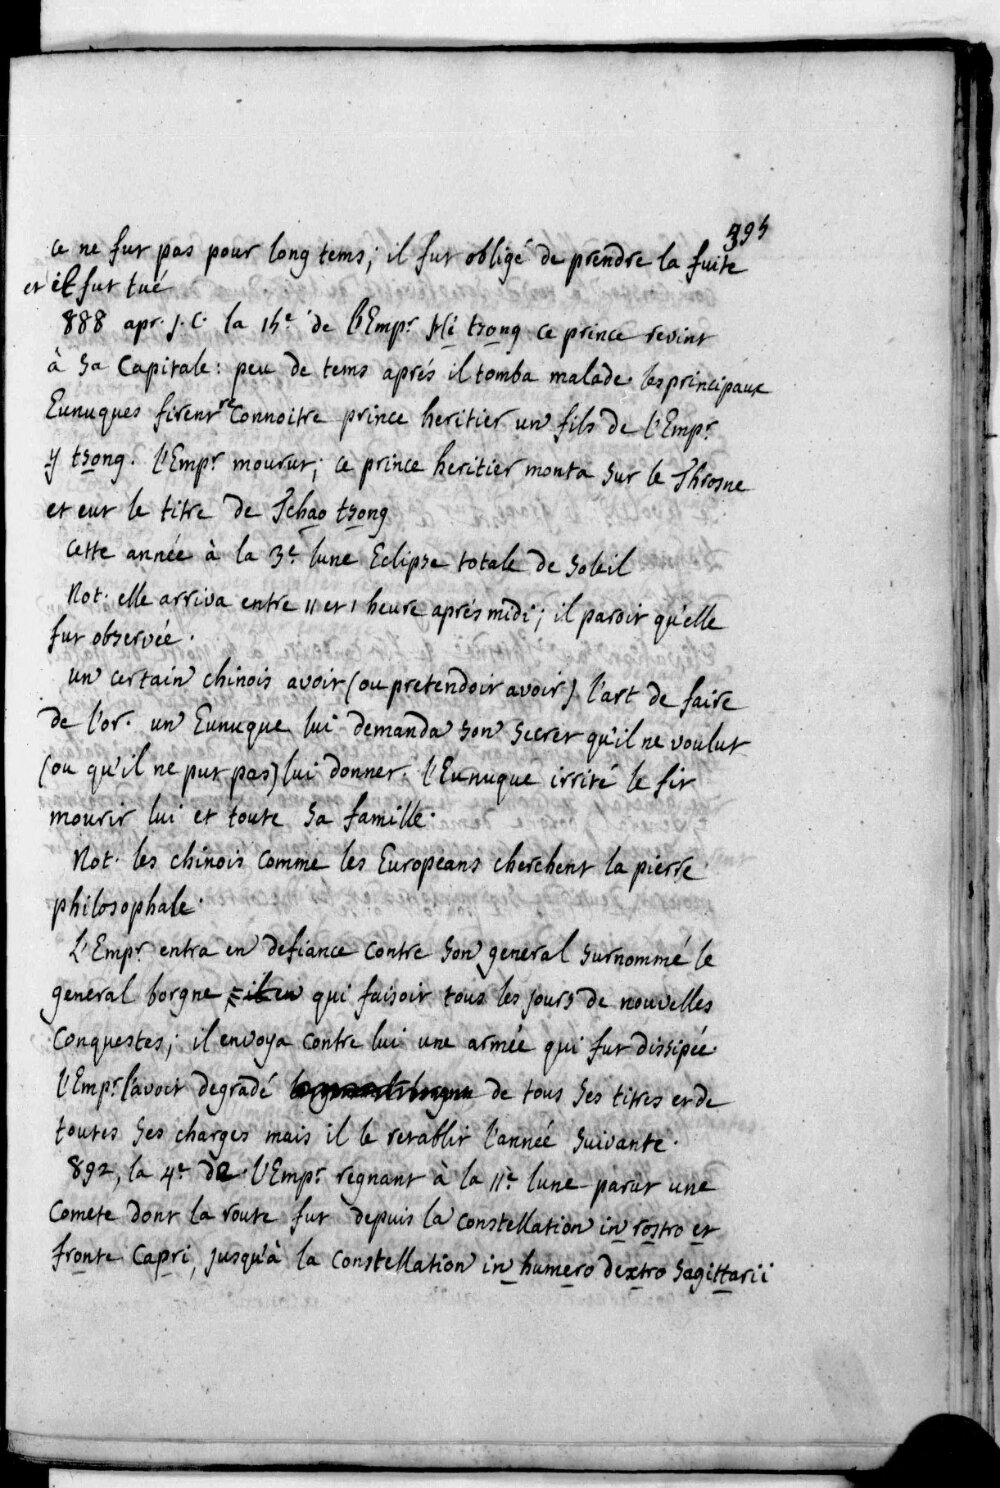 595
ce ne fut pas pour long tems; il fut obligé de prendre la fuite
et il fut tué
888 apr. J.C. la 15e de l'Empr Hi tsong ce prince revint
à sa Capitale: peu de tems aprés il tomba malade. les principaux
Eunuques firent reconnoitre prince heritier un fils de l'Empr
y tsong. l'Empr mourut; ce prince heritier monta sur le Throsne
et eut le titre de Tchao tsong
cette année à la 3e lune Eclipse totale de Soleil
Not. elle arriva entre 11 et 1 heure aprés midi; il paroit qu'elle
fut observée.
un certain chinois avoit (ou pretendoit avoir) l'art de faire
de l'or. un Eunuque lui demanda son secret qu'il ne voulut
(ou qu'il ne put pas) lui donner. l'Eunuque irrité le fit
mourir lui et toute sa famille.
Not. les chinois comme les Européans cherchent la pierre
philosophale.
L'Empr entra en defiance contre son general surnommé le
general borgne, qui faisoit tous les jours de nouvelles
conquestes; il envoya contre lui une armée qui fut dissipée.
l'Empr l'avoit degradé de tous ses titres et de
toutes ses charges mais il le retablit l'année suivante.
892, la 4e de l'Empr regnant à la 11e lune parut une
Comete dont la route fut depuis la constellation in rostro et
fronte Capri, jusqu'à la constellation in humero dextro Sagittarii